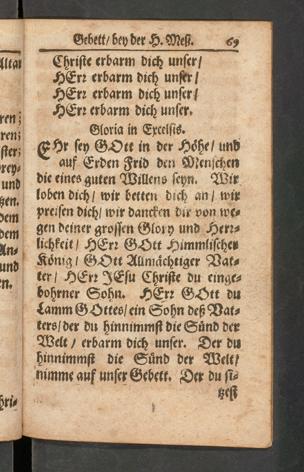 Gebett / bey der H. Meß. 69
Christe erbarm dich unser /
HErr erbarm dich unser /
HErr erbarm dich unser /
HErr erbarm dich unser.
Gloria in Excelsis.
EHr sey GOtt in der Höhe / und
auf Erden Frid den Menschen
die eines guten Willens seyn. Wir
loben dich / wir betten dich an / wir
preisen dich / wir dancken dir von we-
gen deiner grossen Glory und Herr-
lichkeit / HErr GOtt Himmlischer
König / GOtt Allmächtiger Vat-
ter / HErr JEsu Christe du einge-
bohrner Sohn. HErr GOtt du
Lamm GOttes / ein Sohn deß Vat-
ters / der du hinnimmst die Sünd der
Welt / erbarm dich unser. Der du
hinnimmst die Sünd der Welt /
nimme auf unser Gebett. Der du si-
tzest